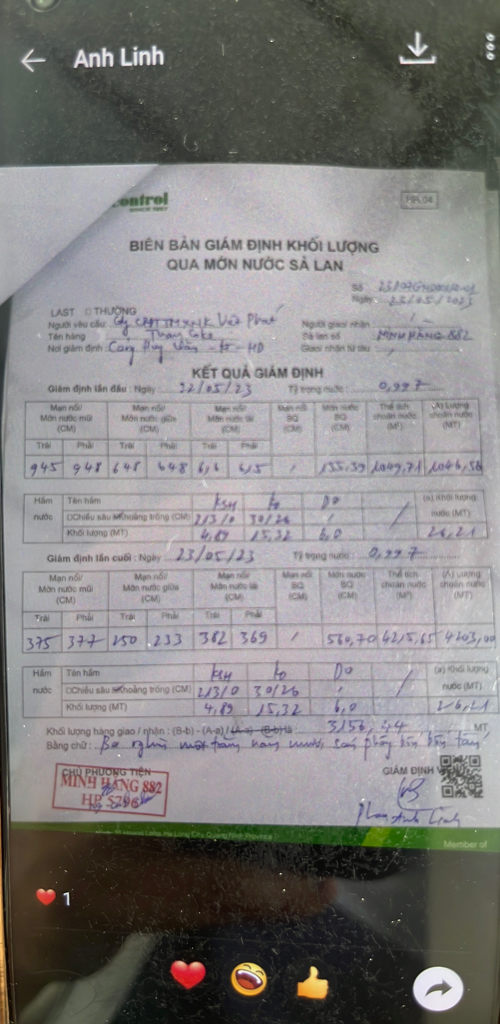 Anh Linh
control
HP 04
BIÊN BẢN GIÁM ĐỊNH KHỐI LƯỢNG
QUA MỚN NƯỚC SÀ LAN
Số
Ngày: 23/05/2023
LAST □ THƯỜNG
Người yêu cầu: Cty CPĐTTMXNK Việt Phát
Người giao nhận
Tên hàng Than Coke
Sà lan số MINH HẰNG 882
Nơi giám định Cảng
Giao nhận từ tàu
KẾT QUẢ GIÁM ĐỊNH
Giám định lần đầu : Ngày 22/05/23 Tỷ trọng nước : 0,997
Mạn nổi/ Mạn nổi/ Mạn nổi/ Mạn nổi Mớn nước Thể tích (A) Lượng
Mớn nước mũi Mớn nước giữa Mớn nước lái BQ BQ choán nước choán nước
(CM) (CM) (CM) (CM) (CM) (M³) (MT)
Trái Phải Trái Phải Trái Phải
945 948 648 648 616 615 / 135,39 1049,71 1046,56
Hầm Tên hầm KSH Ko Do (a) Khối lượng
nước □Chiều sâu Khoảng trống (CM) 213/0 30/26 / nước (MT)
Khối lượng (MT) 4,89 15,32 6,0 26,21
Giám định lần cuối : Ngày 23/05/23 Tỷ trọng nước : 0,997
Mạn nổi/ Mạn nổi/ Mạn nổi/ Mạn nổi Mớn nước Thể tích (A) Lượng
Mớn nước mũi Mớn nước giữa Mớn nước lái BQ BQ choán nước choán nước
(CM) (CM) (CM) (CM) (CM) (M³) (MT)
Trái Phải Trái Phải Trái Phải
375 377 250 233 382 369 / 530,70 4215,65 4203,00
Hầm Tên hầm KSH Ko Do (a) Khối lượng
nước □Chiều sâu Khoảng trống (CM) 213/0 30/26 / nước (MT)
Khối lượng (MT) 4,89 15,32 6,0 26,21
Khối lượng hàng giao / nhận : (B-b) - (A-a) / 3156,44 MT
Bằng chữ : Ba nghìn một trăm năm mươi sáu phẩy bốn bốn tấn
CHỦ PHƯƠNG TIỆN
GIÁM ĐỊNH VIÊN
MINH HẰNG 882
HP 5296
Phan Anh Linh
Ha Long City, Quang Ninh Province
Member of
1